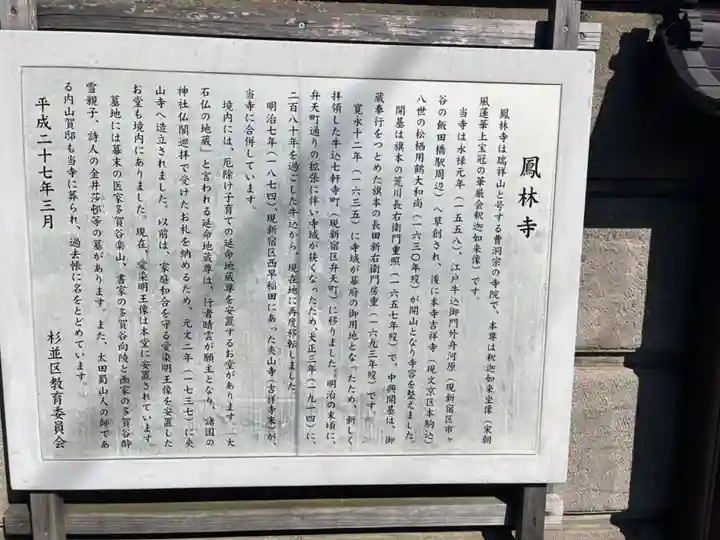 鳳林寺
鳳林寺は瑞祥山と号する曹洞宗の寺院で、本尊は釈迦如来坐像（宋朝
風蓮華上宝冠の華厳会釈迦如来像）です。
当寺は永禄元年（一五五八）、江戸牛込御門外舟河原（現新宿区市ヶ
谷の飯田橋駅周辺）へ草創され、後に本寺吉祥寺（現文京区本駒込）
八世の松栖用鶴大和尚（一六三〇年歿）が開山となり寺容を整えました。
開基は旗本の荒川長右衛門重照（一六五七年歿）で、中興開基は、御
蔵奉行をつとめた旗本の長田新右衛門房重（一六九三年歿）です。
寛永十二年（一六三五）に寺域が幕府の御用地となったため、新しく
拝領した牛込七軒寺町（現新宿区弁天町）に移りました。明治の末頃に、
弁天町通りの拡張に伴い寺域が狭くなったため、大正三年（一九一四）に、
二百八十年を過ごした牛込から、現在地に再度移転しました。
明治七年（一八七四）、現新宿区西早稲田にあった夾山寺（吉祥寺末）が、
当寺に合併しています。
境内には、厄除け子育ての延命地蔵尊を安置するお堂があります。「大
石仏の地蔵」と言われる延命地蔵尊は、行者晴雲が願主となり、諸国の
神社仏閣巡拝で受けたお札を納めるため、元文二年（一七三七）に夾
山寺へ造立されました。以前は、家庭和合を守る愛染明王像を安置した
お堂も境内にありました。現在、愛染明王像は本堂に安置されています。
墓地には幕末の医家多賀谷楽山、書家の多賀谷向陵と画家の多賀谷酔
雪親子、詩人の金井莎邨等の墓があります。また、太田蜀山人の師であ
る内山賀邸も当寺に葬られ、過去帳に名をとどめています。
平成二十七年三月
杉並区教育委員会